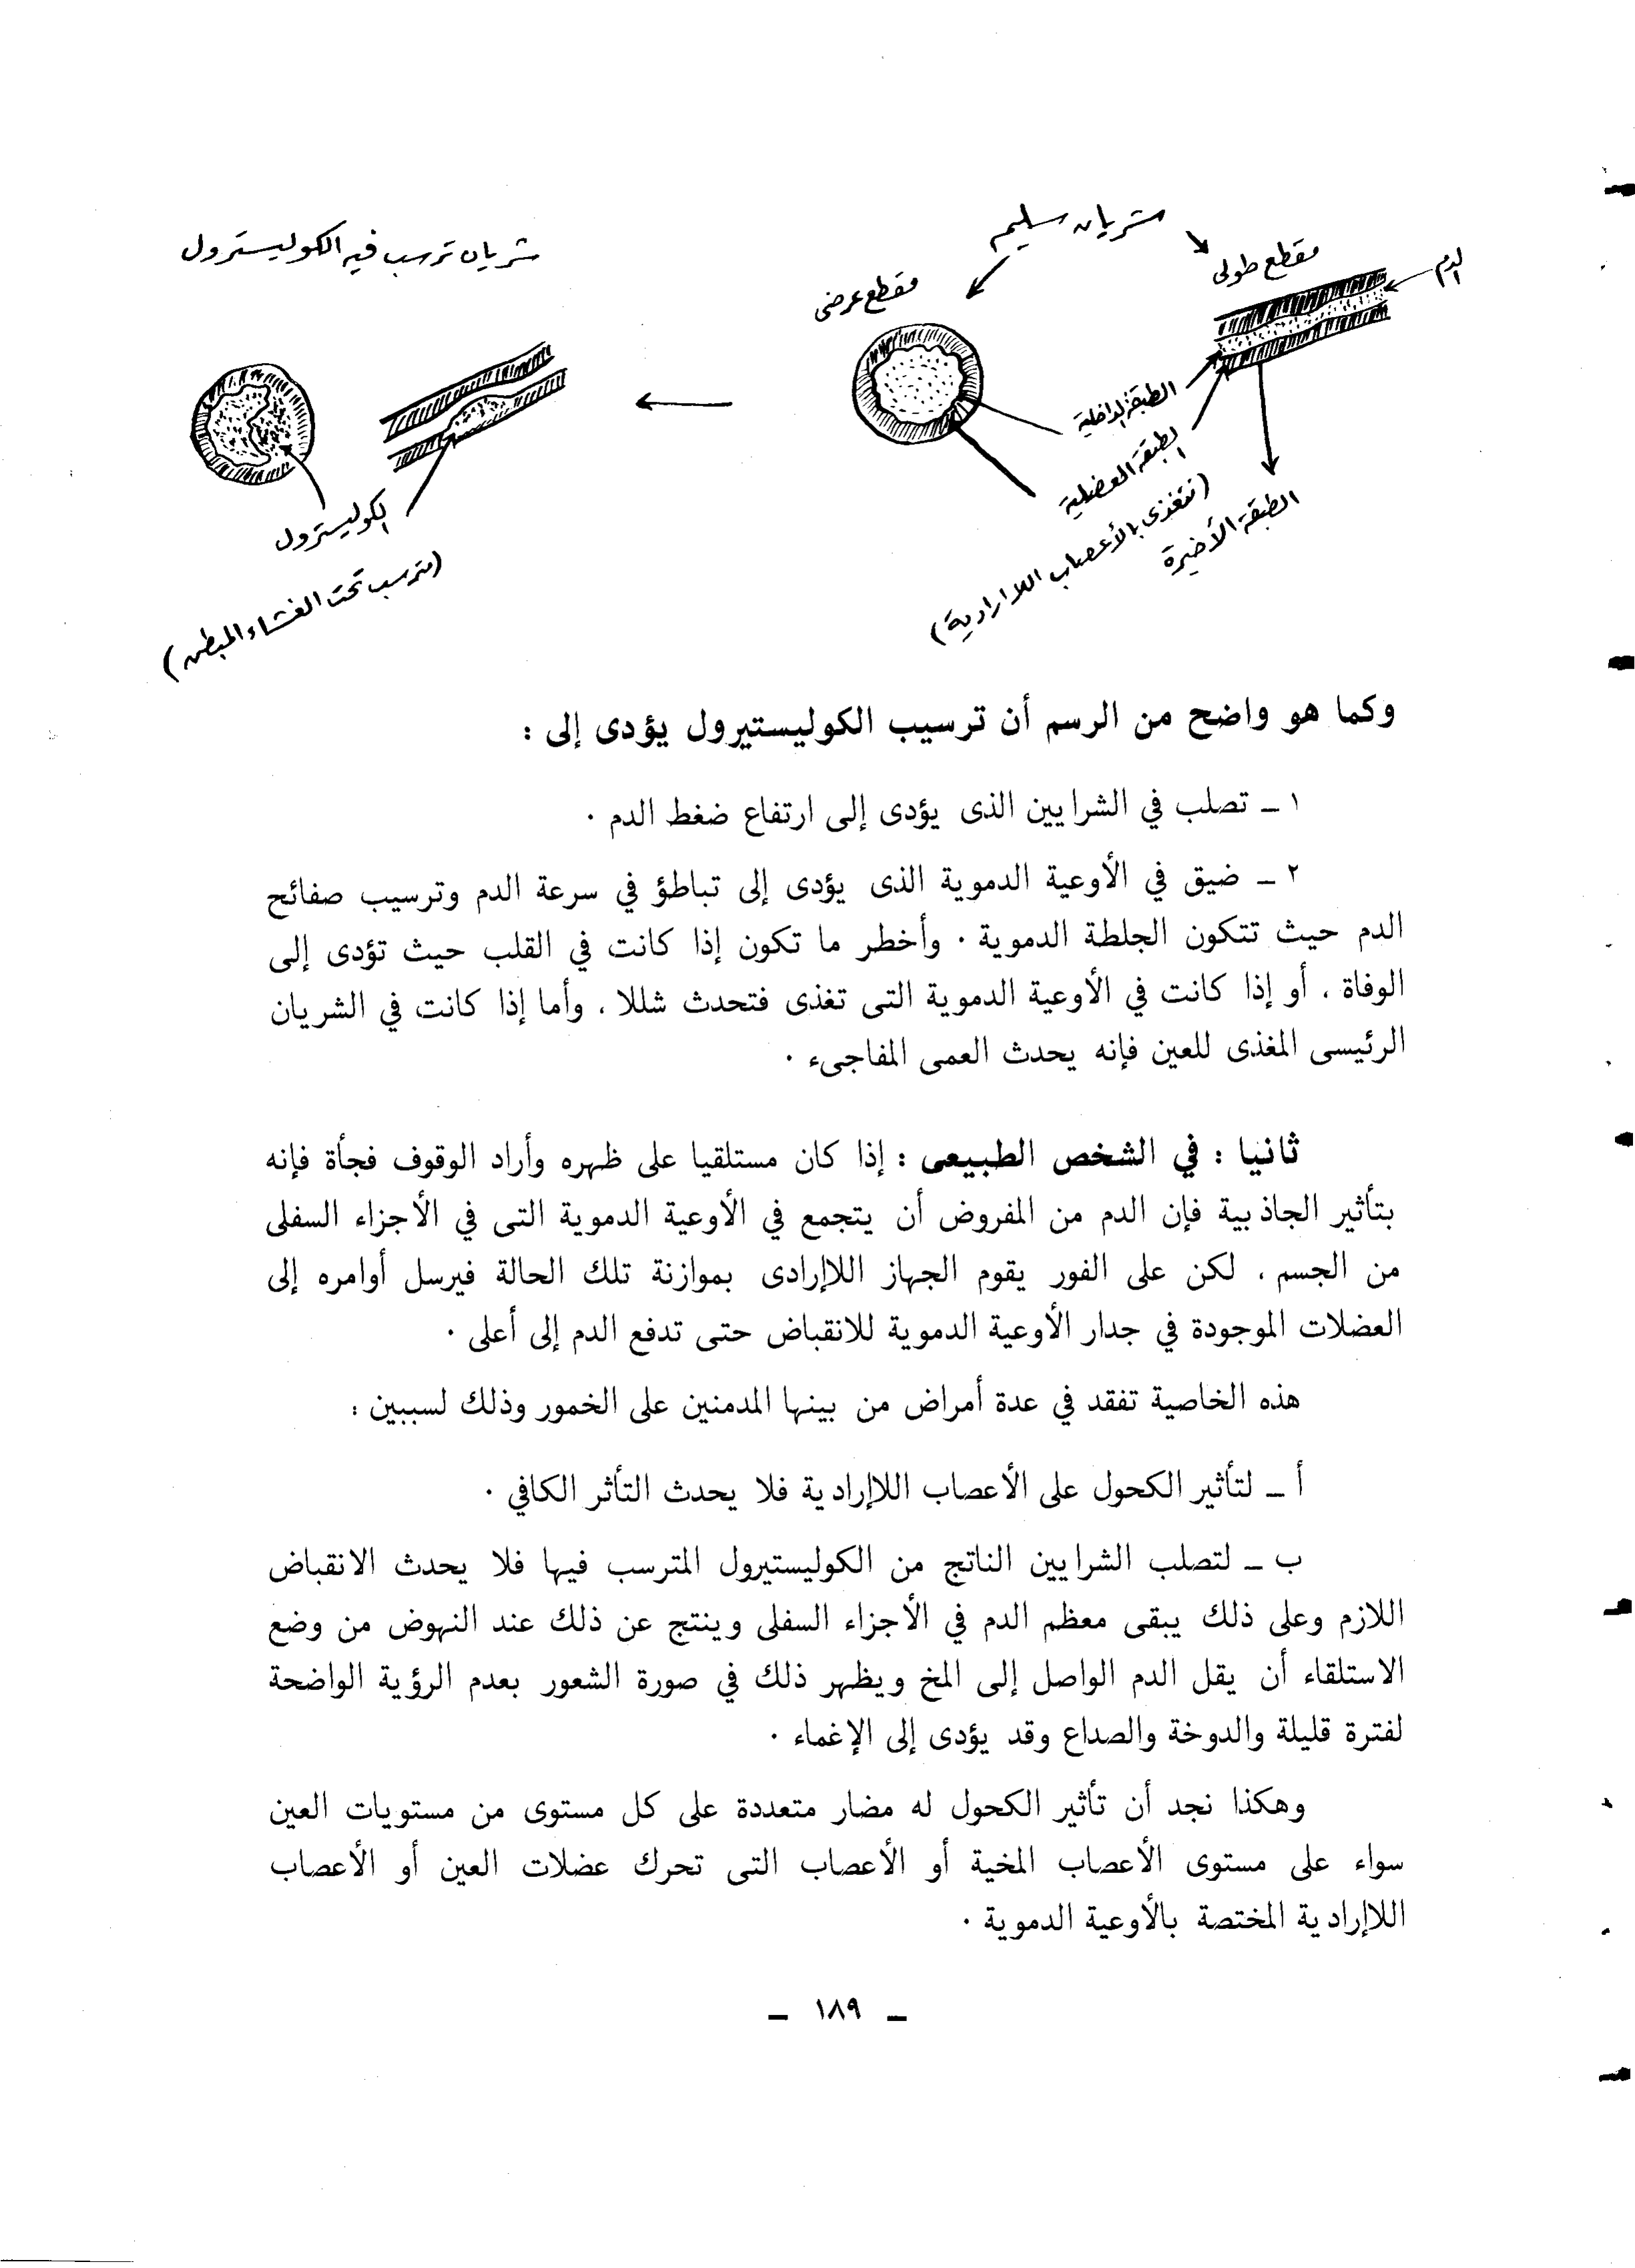 شريان سليم
شريان ترسب فيه الكوليسترول
مقطع طولى
الدم
مقطع عرضى
الطبقة الداخلية
الطبقة العضلية
(تتغذى بالأعصاب اللاارادية)
الطبقة الأخيرة
الكوليسترول
(مترسب تحت الغشاء المبطن)
وكما هو واضح من الرسم أن ترسيب الكوليستيرول يؤدى إلى :
١ ـ تصلب في الشرايين الذى يؤدى إلى ارتفاع ضغط الدم ٠
٢ ـ ضيق في الأوعية الدموية الذى يؤدى إلى تباطؤ في سرعة الدم وترسيب صفائح
الدم حيث تتكون الجلطة الدموية ٠ وأخطر ما تكون إذا كانت في القلب حيث تؤدى إلى
الوفاة ، أو إذا كانت في الأوعية الدموية التى تغذى فتحدث شللا ، وأما إذا كانت في الشريان
الرئيسى المغذى للعين فإنه يحدث العمى المفاجىء ٠
ثانيا : في الشخص الطبيعى : إذا كان مستلقيا على ظهره وأراد الوقوف فجأة فإنه
بتأثير الجاذبية فإن الدم من المفروض أن يتجمع في الأوعية الدموية التى في الأجزاء السفلى
من الجسم ، لكن على الفور يقوم الجهاز اللاإرادى بموازنة تلك الحالة فيرسل أوامره إلى
العضلات الموجودة في جدار الأوعية الدموية للانقباض حتى تدفع الدم إلى أعلى ٠
هذه الخاصية تفقد في عدة أمراض من بينها المدمنين على الخمور وذلك لسببين :
أ ـ لتأثير الكحول على الأعصاب اللاإرادية فلا يحدث التأثر الكافي ٠
ب ـ لتصلب الشرايين الناتج من الكوليستيرول المترسب فيها فلا يحدث الانقباض
اللازم وعلى ذلك يبقى معظم الدم في الأجزاء السفلى وينتج عن ذلك عند النهوض من وضع
الاستلقاء أن يقل الدم الواصل إلى المخ ويظهر ذلك في صورة الشعور بعدم الرؤية الواضحة
لفترة قليلة والدوخة والصداع وقد يؤدى إلى الإغماء ٠
وهكذا نجد أن تأثير الكحول له مضار متعددة على كل مستوى من مستويات العين
سواء على مستوى الأعصاب المخية أو الأعصاب التى تحرك عضلات العين أو الأعصاب
اللاإرادية المختصة بالأوعية الدموية ٠
ـ ١٨٩ ـ